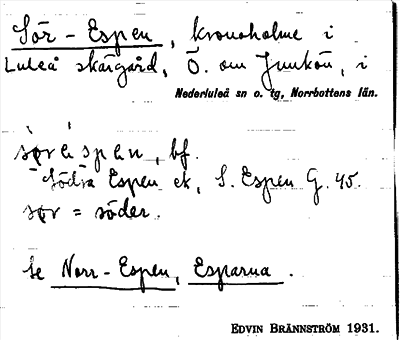 Sör-Espen, kronoholme i
Luleå skärgård, Ö. om Junkön, i
Nederluleå sn o. tg, Norrbottens län.
bf.
Södra Espen ek, S. Espen G. 45.
sør = söder.
Se Norr-Espen, Esparna.
EDVIN BRÄNNSTRÖM 1931.